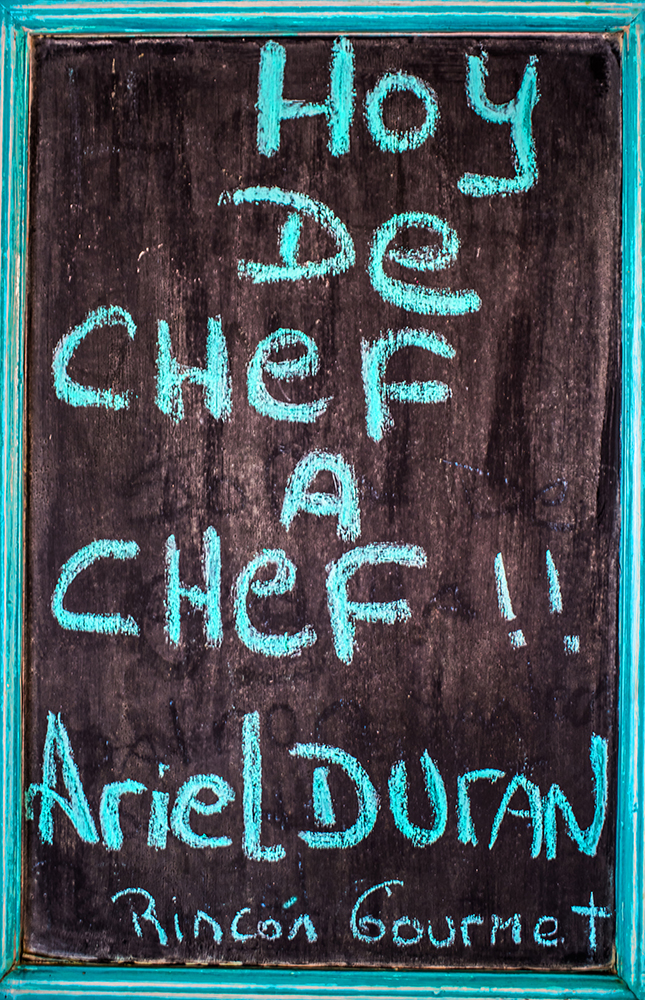 Hoy
De
CHeF
A
CHeF !!
Ariel DUrAN
Rincón Gourmet